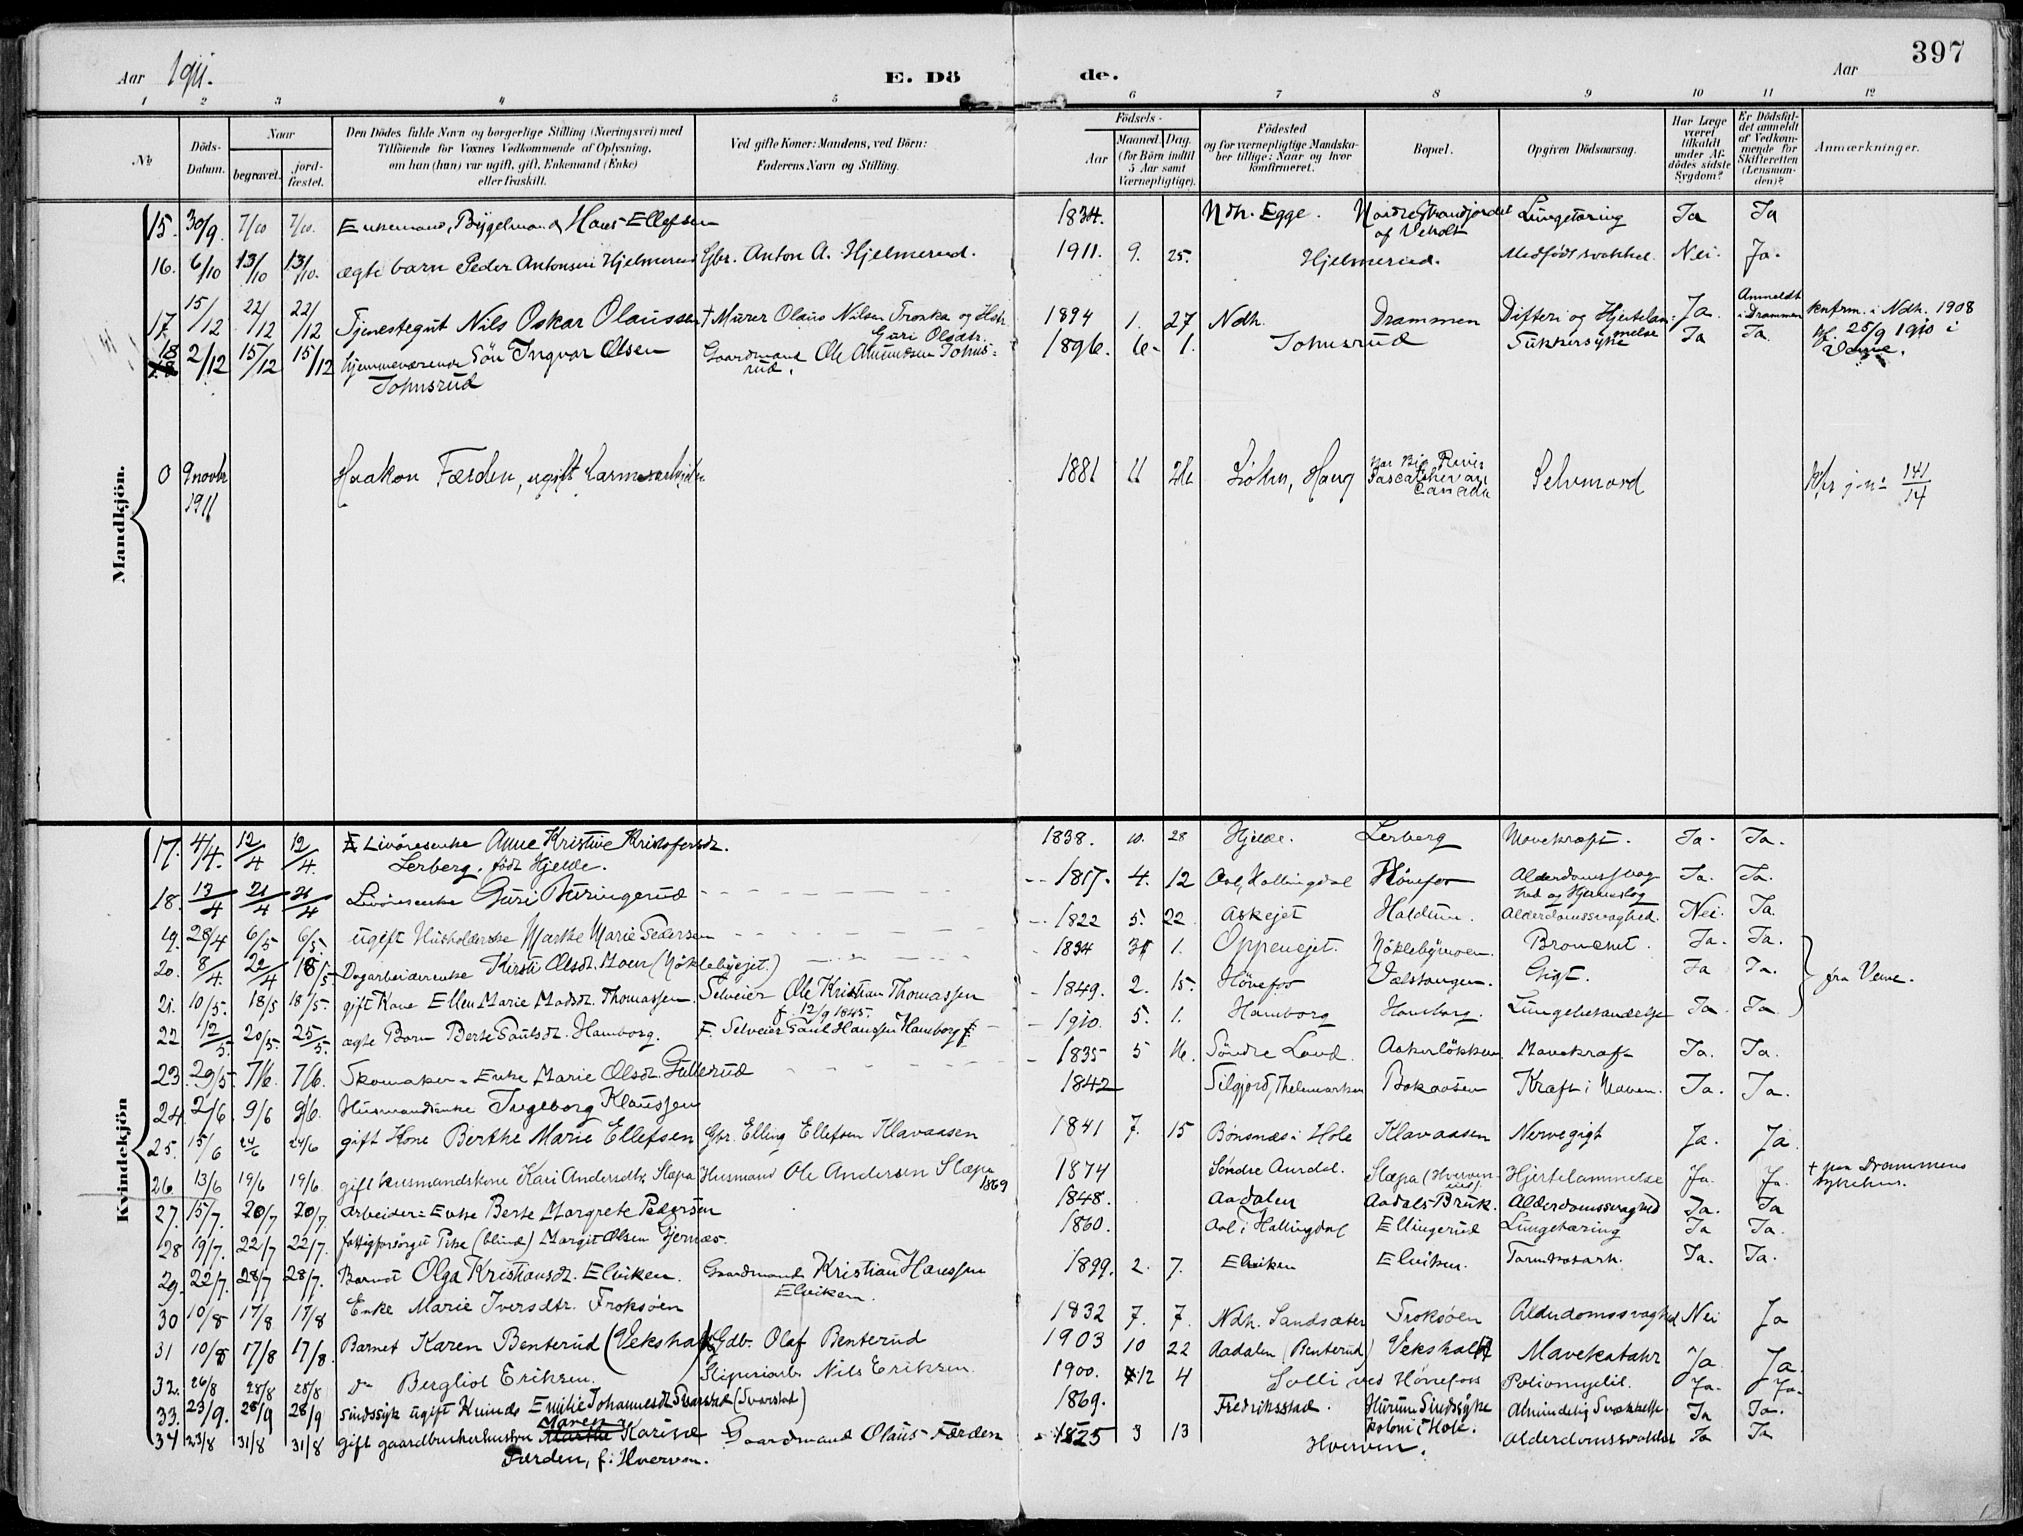 397
Aar 1911.
E. Dö de.
Aar
1 2 3 4 5 6 7 8 9 10 11 12
No
Döds-Datum.
Naar
begravet.
jord-fæstet.
Den Dödes fulde Navn og borgerlige Stilling (Næringsvei) med
Tilföiende for Voxnes Vedkommende af Oplysning,
om han (hun) var ugift, gift, Enkemand (Enke)
eller fraskilt.
Ved gifte Koner: Mandens, ved Börn:
Faderens Navn og Stilling.
Födsels-
Aar
Maaned. Dag.
(for Börn indtil
5 Aar samt
Værnepligtige).
Födested
og for værnepligtige Mandska-
ber tillige: Naar og hvor
konfirmeret.
Bopæl.
Opgiven Dödsaarsag.
Har Læge
været
tilkaldt
under Af-
dödes sidste
Sygdom?
Er Dödsfal-
det anmeldt
af Vedkom-
mende for
Skifteretten
(Lensman-
den)?
Anmærkninger.
Mandkjön.
15. 30/9 7/10 7/10. Enkemand, Hans Ellefsen 1834. Ndh. Egge. Lungetæring Ja Ja
16. 6/10 13/10 13/10. ægte barn Peder Antonsen Hjelmerud Gbr. Anton A. Hjelmerud. 1911. 9. 25. Hjelmerud. Medfødt svakhet. Nei. Ja.
17 15/12 22/12 22/12 Tjenestegut Nils Oskar Olaussen + Murer Olaus Nilsen Tronka og Hstr. Guri Olsdtr. 1894 1. 27 Ndh. Drammen Difteri og Hjertelammelse Ja Anmeldt i Drammen knfrm. i Ndh. 1908
18 2/12 15/12 15/12 hjemmeværende Søn Ingvar Olsen Gaardmand Ole Johnsrud. 1896. 6. 1. Johnsrud Sukkersyke Ja Ja. kf. 25/9 1910 i
Johnsrud Veme.
0 9 novbr 1911 Haakon Færden, ugift farmarbeider 1881 11 26 Haug Big River Sascatchevan Canada Selvmord 141/14
Kvindekjön
17. 4/4. 12/4 12/4. Livöresenke Anne Kristine Kristofersdt. 1838. 10. 28 Hjelde. Lerberg Mavekræft. Ja. Ja.
Lerberg. født Hjelde.
18. 13/4 21/4 21/4 Livöresenke Guri 1817. 4. 12 Aal, Hallingdal Hönefos Alderdomssvaghed og Hjerneslag Ja. Ja.
19. 28/4 6/5 6/5. ugift Husholderske Marthe Marie Pedersen 1822 5. 22 Askejet Haldum. Alderdomssvaghed. Nei. Ja.
20. 8/4. 22/4 18/5 Dagarbeiderenke Kirsti Olsdt. Moen (Nöklebyejet.) 1834 1. Oppenejet. Nöklebymoen. Bronchit. Ja. Ja.
21. 10/5. 18/5 18/5. gift Kone Ellen Marie Madsdt. Thomassen. Selveier Ole Kristian Thomassen f. 12/9 1845. 1849. 2. 15. Hönefos Gigt. Ja Ja. fra Veme.
22 12/5. 20/5. 25/5. ægte Barn Berte Paulsdt. Hamborg. F. Selveier Paul Hanssen Hamborg 1910. 5. 1. Hamborg Hamborg. Lungebetændelse Ja. Ja.
23. 29/5. 7/6. 7/6. Skomaker-Enke Marie Olsdt. Gullerud 1835 5 16. Söndre Land. Aakerlökken Mavekræft Ja. Ja.
24. 2/6. 9/6 9/6. Husmandsenke Ingeborg Klaussen 1842 Silgjord, Thelemarken Bakaasen Kræft i Maven. Ja. Ja.
25. 15/6 24/6 24/6 gift Kone Berthe Marie Ellefsen Gbr. Elling Ellefsen Klavaasen 1841 7. 15 Bönsnæs i Hole Klavaasen Nervegigt Ja. Ja.
26. 13/6 19/6 19/6. gift husmandskone Kari Andersdtr. Slæpa Husmand Ole Andersen Slæpa 1869 1874 Söndre Aurdal. Slæpa Hjertelammelse Ja. Ja. + paa Drammens sykehus.
27. 15/7. 20/7 20/7. Arbeider-Enke Berte Margrete Pedersen 1848. Aadalen Aadals-Bruk. Alderdomssvaghed Ja. Ja
28 19/7. 22/7 22/7. fattigforsörget Pike (blind) Margit Olsen Gjernæs. 1860. Aal i Hallingdal Ellingerud Lungetæring Ja Ja.
29. 22/7. 28/7 28/7. Barnet Olga Kristiansdt. Elviken. Gaardmand Kristian Hanssen Elviken. 1899. 2. 7. Elviken Elviken. Ja. Ja.
30 10/8 17/8 17/8 Enke Marie Iversdtr. Froksöen 1832 7. 7. Ndh. Sandsæter Froksöen Alderdomssvaghed Nei Ja
31 10/8 17/8 17/8. Barnet Karen Benterud (Vekshall) Gdb. Olaf Benterud 1903 10 22 Aadalen (Benterud) Vekshall Mavekatahr Ja Ja.
32. 26/8 28/8 28/8 Do Bergliot Eriksen. Sliperiarb. Nils Eriksen 1900. 12 4 Solli ved Hönefoss Poliomyelit. Ja. Ja.
33. 23/9. 28/9 28/9 Sindssyk ugift Kvinde Emilie Johannesdt. Svarstad (Svarstad) 1869. Fredriksstad. Sindssyke koloni i Hole. Almindelig Svækkelse. Ja Ja.
34 23/8 31/8 31/8 gift gaardbrukerhustru Maren Karine Gaardmand Olaus Færden 1825 3 13 Hverven. Alderdomssvakhet Ja Ja
Færden, f. Hverven.